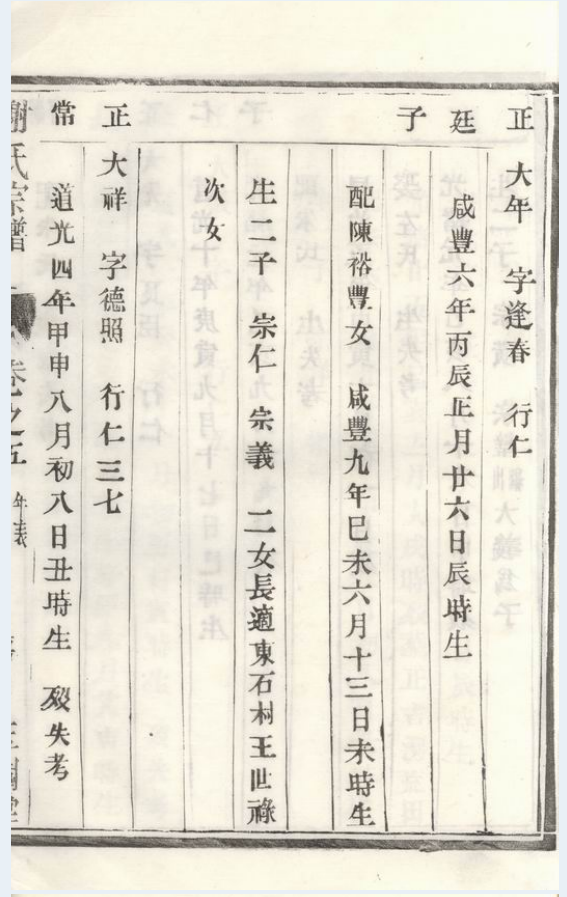 正 大年 字逢春 行仁
廷 咸豐六年丙辰正月廿六日辰時生
子
配陳裕豐女 咸豐九年巳未六月十三日未時生
生二子 宗仁 宗義 二女長適東石村王世祿
次女
正 大祥 字德照 行仁三七
常 道光四年甲申八月初八日丑時生 歿失考
謝氏宗譜 卷之五 年表